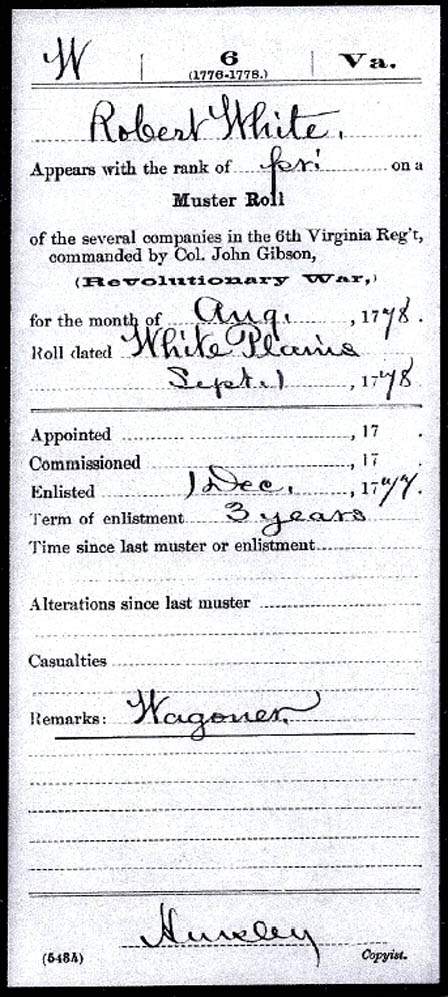 W | 6 | Va.
(1776-1778.)
Robert White.
Appears with the rank of pri on a
Muster Roll
of the several companies in the 6th Virginia Reg't,
commanded by Col. John Gibson,
(Revolutionary War,)
for the month of Aug. , 1778.
Roll dated White Plains
Sept. 1 , 1778
Appointed , 17 .
Commissioned , 17 .
Enlisted 1 Dec. , 1777.
Term of enlistment 3 years
Time since last muster or enlistment
Alterations since last muster
Casualties
Remarks: Wagoner.
(548A) Copyist.